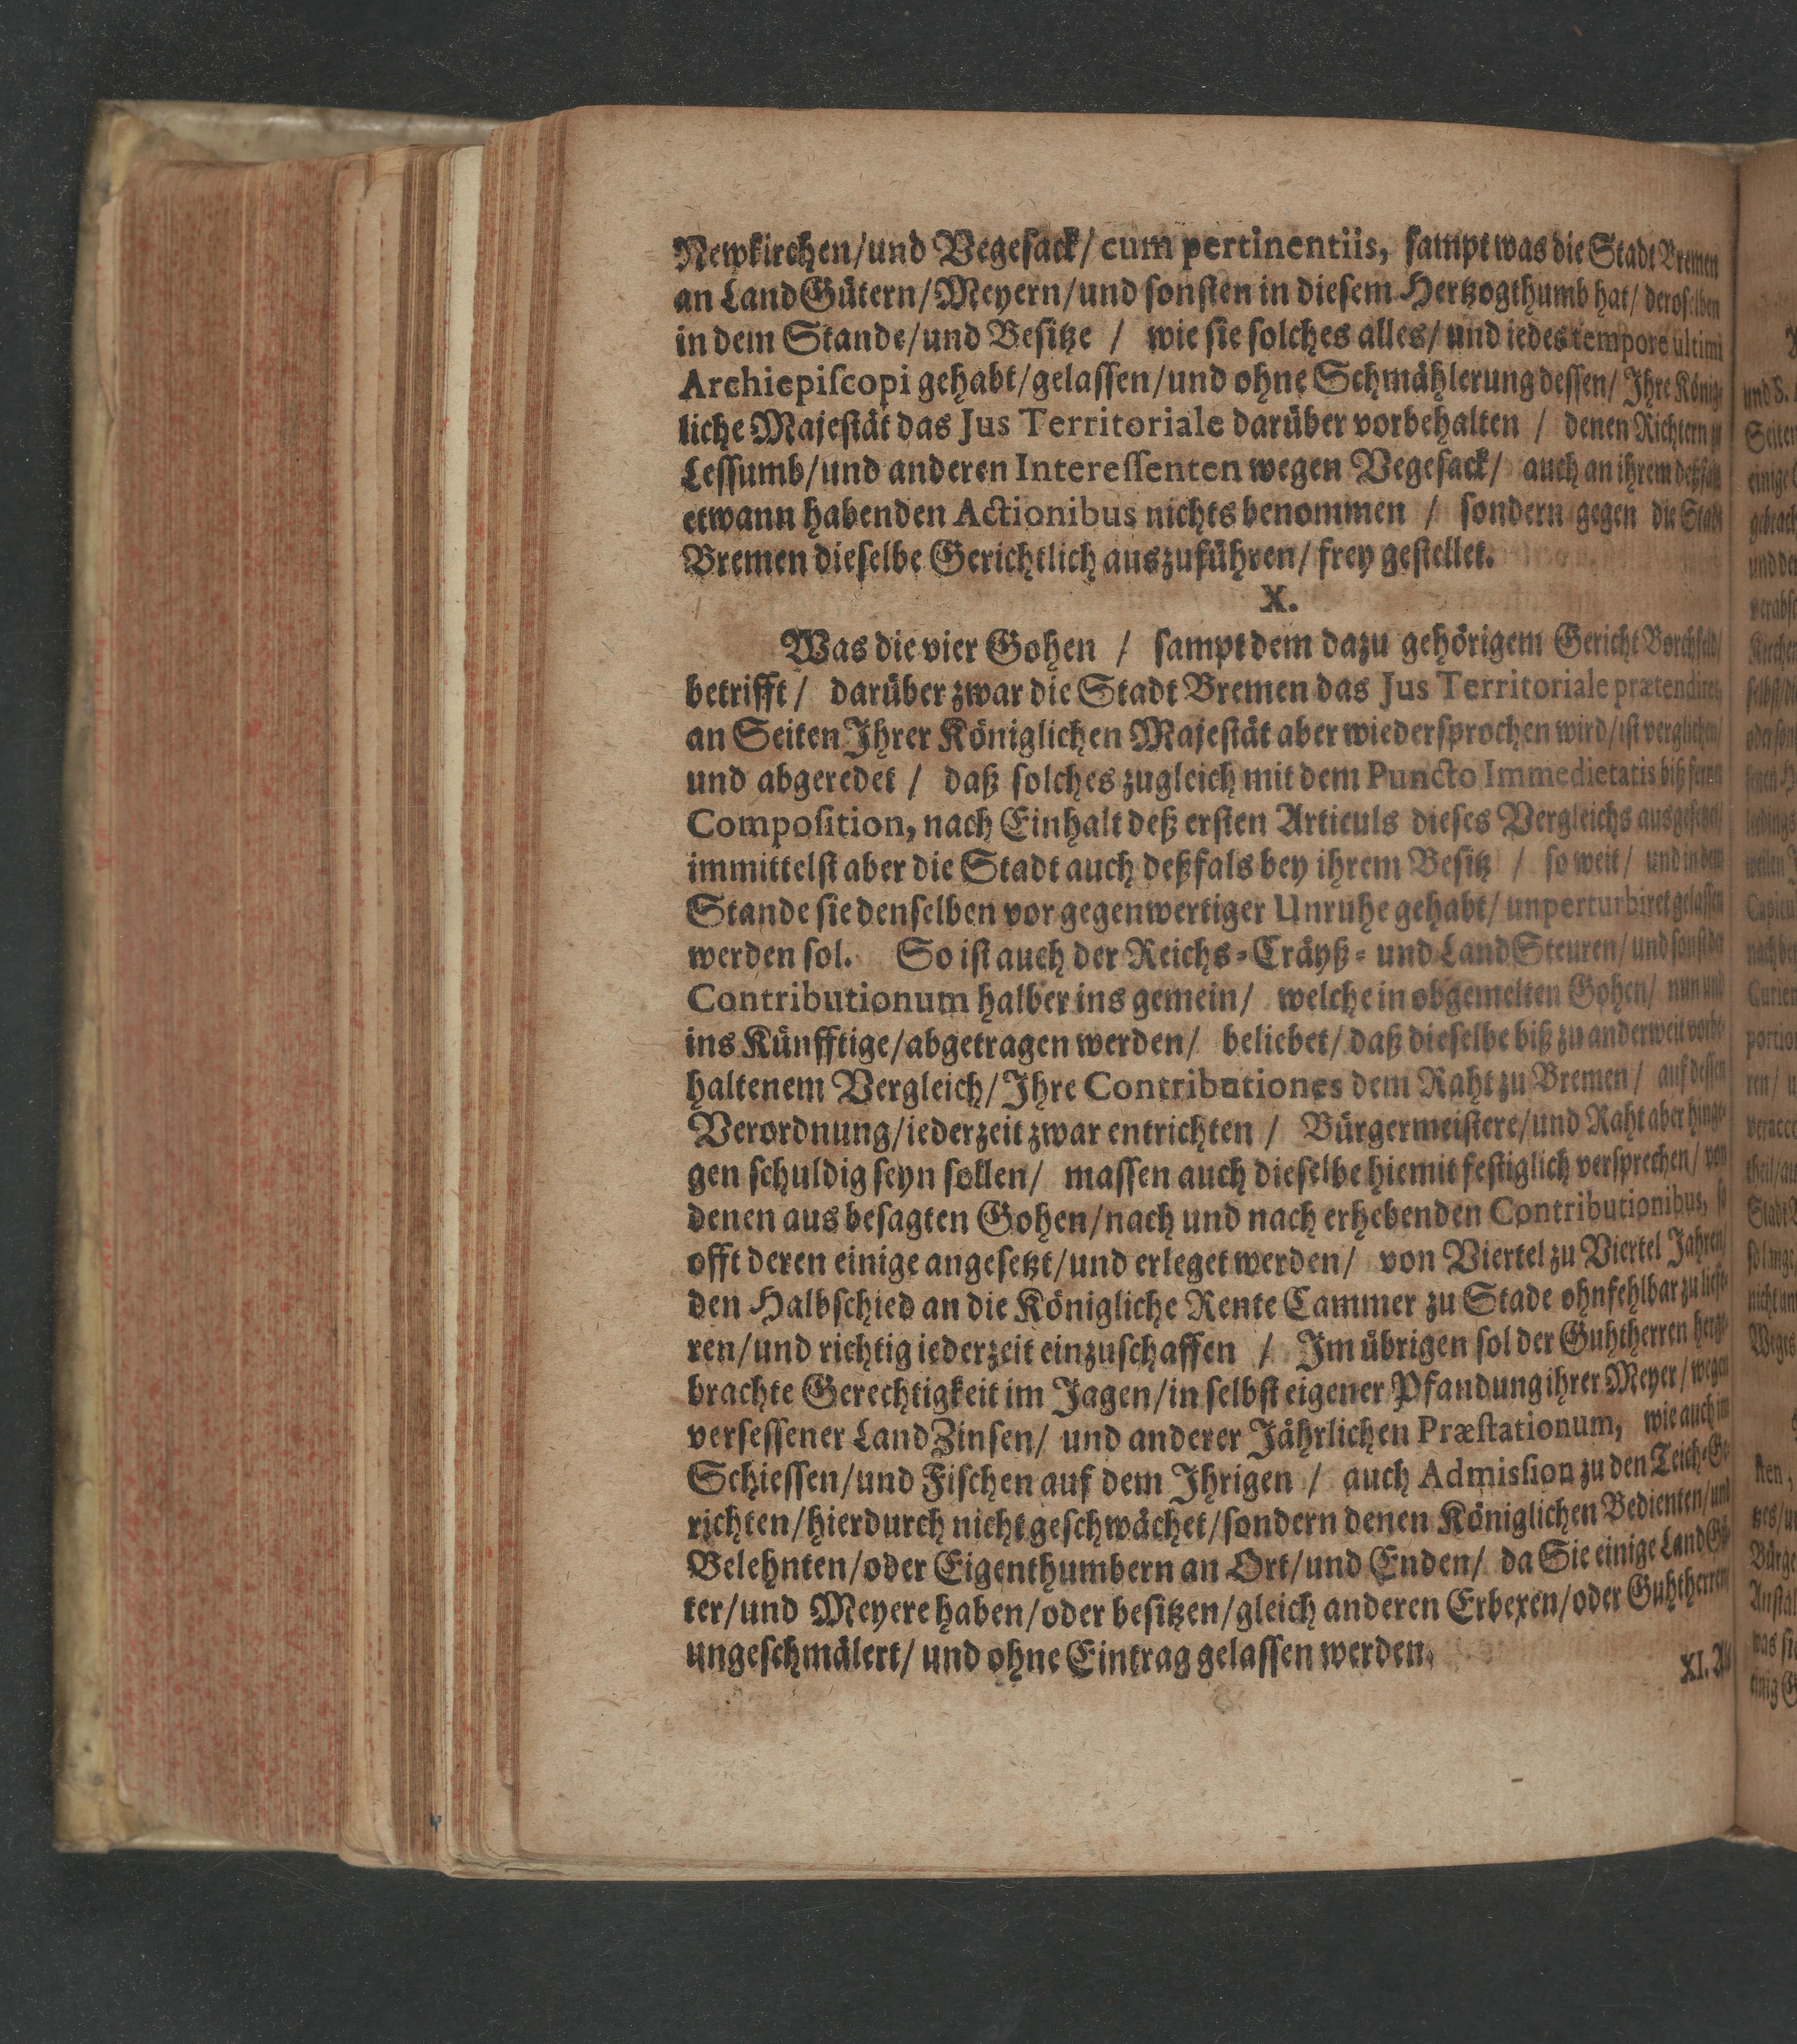 Newkirchen/und Vegesack/ cum pertinentiis, sampt was die Stadt Bremen
an Land Gütern/Meyern/und sonsten in diesem Hertzogthumb hat/ deroselben
in dem Stande/und Besitze / wie sie solches alles/ und iedes tempore ultimi
Archiepiscopi gehabt/gelassen/und ohne Schmählerung dessen/ Ihre König-
liche Majestät das Jus Territoriale darüber vorbehalten / denen Richtern zu
Lessumb/und anderen Interessenten wegen Vegesack/ auch an ihrem deßfals
etwann habenden Actionibus nichts benommen / sondern gegen die Stadt
Bremen dieselbe Gerichtlich auszuführen/ frey gestellet.
X.
Was die vier Gohen / sampt dem dazu gehörigem Gericht Borchfeld/
betrifft / darüber zwar die Stadt Bremen das Jus Territoriale prætendiret,
an Seiten Ihrer Königlichen Majestät aber wiedersprochen wird/ist verglichen/
und abgeredet / daß solches zugleich mit dem Puncto Immedietatis biß ferne
Composition, nach Einhalt deß ersten Articuls dieses Vergleichs ausgesetzet/
immittelst aber die Stadt auch deßfals bey ihrem Besitz / so weit / und in dem
Stande sie denselben vor gegenwertiger Unruhe gehabt/ unperturbiret gelassen
werden sol. So ist auch der Reichs-Cräyß- und Land Steuren/ und sonst der
Contributionum halber ins gemein/ welche in obgemelten Gohen/ nun und
ins Künfftige/abgetragen werden/ beliebet/ daß dieselbe biß zu anderweit vorbe-
haltenem Vergleich/Ihre Contributiones dem Raht zu Bremen/ auf dessen
Verordnung/iederzeit zwar entrichten / Bürgermeistere/und Raht aber hinge-
gen schuldig seyn sollen/ massen auch dieselbe hiemit festiglich versprechen/ von
denen aus besagten Gohen/nach und nach erhebenden Contributionibus, so
offt deren einige angesetzt/und erleget werden/ von Viertel zu Viertel Jahren/
den Halbschied an die Königliche Rente Cammer zu Stade ohnfehlbar zu liefe-
ren/und richtig iederzeit einzuschaffen / Im übrigen sol der Guhtherren herge-
brachte Gerechtigkeit im Jagen/in selbst eigener Pfandung ihrer Meyer/ wegen
versessener Land Zinsen/ und anderer Jährlichen Præstationum, wie auch im
Schiessen/und Fischen auf dem Ihrigen / auch Admission zu den Teich-Ge-
richten/hierdurch nicht geschwächet/sondern denen Königlichen Bedienten/und
Belehnten/oder Eigenthumbern an Ort/und Enden/ da Sie einige Land Gü-
ter/und Meyere haben/oder besitzen/gleich anderen Erbexen/oder Guhtherren
ungeschmälert/ und ohne Eintrag gelassen werden.
XI.